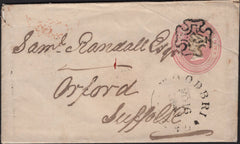 Saml. Randall Esqr
Orford
Suffolk
WOODBRI